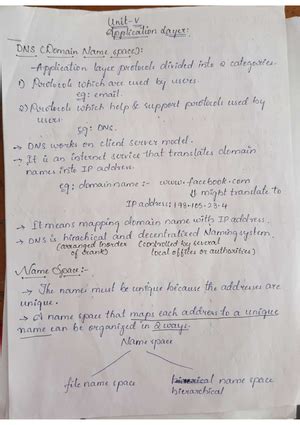 Unit-V
Application Layer:
DNS (Domain Name space):
-Application layer protocols divided into 2 categories.
1) Protocols which are used by users.
eg: email.
2) Protocols which help & support protocols used by
users.
eg: DNS.
→ DNS works on client server model.
→ It is an internet service that translates domain
names into IP address.
eg: domain name:- www.facebook.com
It might translate to
IP address: 198.105.23.4
→ It means mapping domain name with IP address.
→ DNS is hirachical and decentralized Naming system.
(arranged in order (controlled by several
of rank) local offices or authorities)
Name Space:-
→ The names must be unique because the addresses are
unique.
→ A name space that maps each address to a unique
name can be organized in 2 ways.
Name space
file name space name space
hierarchical